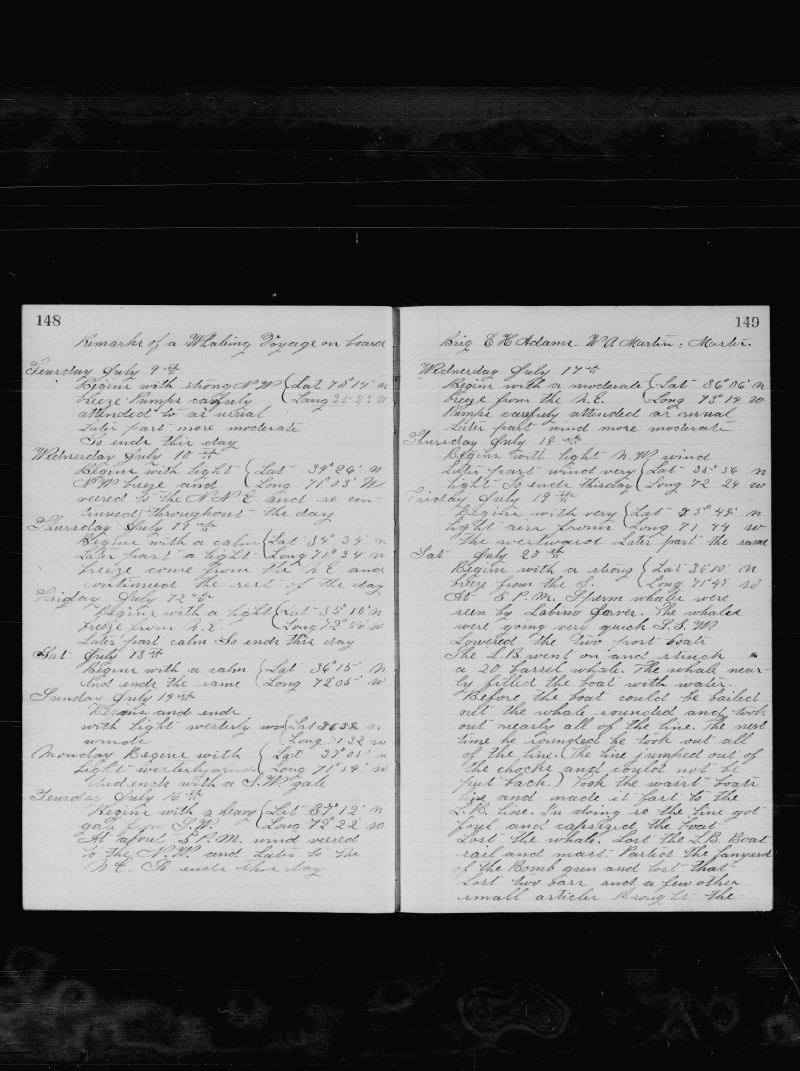 148
Remarks of a Whaling Voyage on board
Teursday July 9th
Begins with strong N.W. Lat 70° 14' n
breeze Pumps carfuly Long 35 23 W
attended to as usual
Later part more moderate
So ends this day
Wednesday July 10th
Begins with light Lat 34° 26' n
N.W breeze and Long 71° 03' W
veered to the N.N.E. and so con-
tinued throughout the day
Thursday July 11th
Begins with a calm Lat 34° 34' n
Later part a light Long 71° 34' w
breeze come from the N.E. and
continued the rest of the day
Friday July 12th
Begins with a light Lat 35° 10' n
breeze from N.E. Long 56' w
Later part calm So ends this day
Sat July 13th
Begins with a calm Lat 36° 15' N
and ends the same Long 72 05' W
Sunday July 14th
Begins and ends
with light westerly Lat 36 32 n
winds Long 32 w
Monday Begins with Lat 37° 05' n
light westerly winds Long 71° 54' w
And ends with a S.W. gale
Teursday July 16th
Begins with a heavy Lat 37° 12' n
gale from S.W. Long 72° 22' w
At about 5 P.M. wind veered
to the N.W. and Later to the
N.E. So ends this day
149
Brig E H Adams. W A Martin; Master.
Wednesday July 17th
Begins with a moderate Lat 36° 06' n
breeze from the N.E. Long 73° 14 w
Pumps carefuly attended as usual
Later part wind more moderate
Thursday July 18th
Begins with light N.W wind
Later part wind very Lat 35° 36 n
light So ends this day Long 72 24 w
Friday July 19th
Begins with very Lat 35° 48' n
light airs from Long 71 44 w
the westward Later part the same
Sat July 20th
Begins with a strong Lat 36 10' n
breeze from the S. Long 71° 48' w
At 5 P.M. Sperm whales were
seen by Latino Javer. The whales
were going very quick S.S.W.
Lowered the two port boats
The L.B. went on and struck
a 20 barrel whale. The whale near-
ly filled the boat with water.
Before the boat could be bailed
out the whale sounded and took
out nearly all of the line. The next
time he sounded he took out all
of the line. (The line jumped out of
the chocks and could not be
put back.) Took the waist boats
line and made it fast to the
L.B. line. In doing so the line got
foul and capsized the boat.
Lost the whale. Lost the L.B. Boat
sail and mast. Parted the lanyard
of the Bomb gun and lost that.
Lost two oars and a few other
small articles Brought the